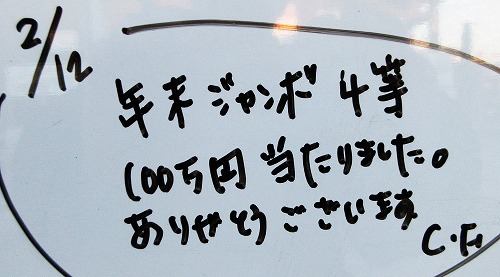 2/12
年末ジャンボ 4等
100万円当たりました。
ありがとうございます
C.F.